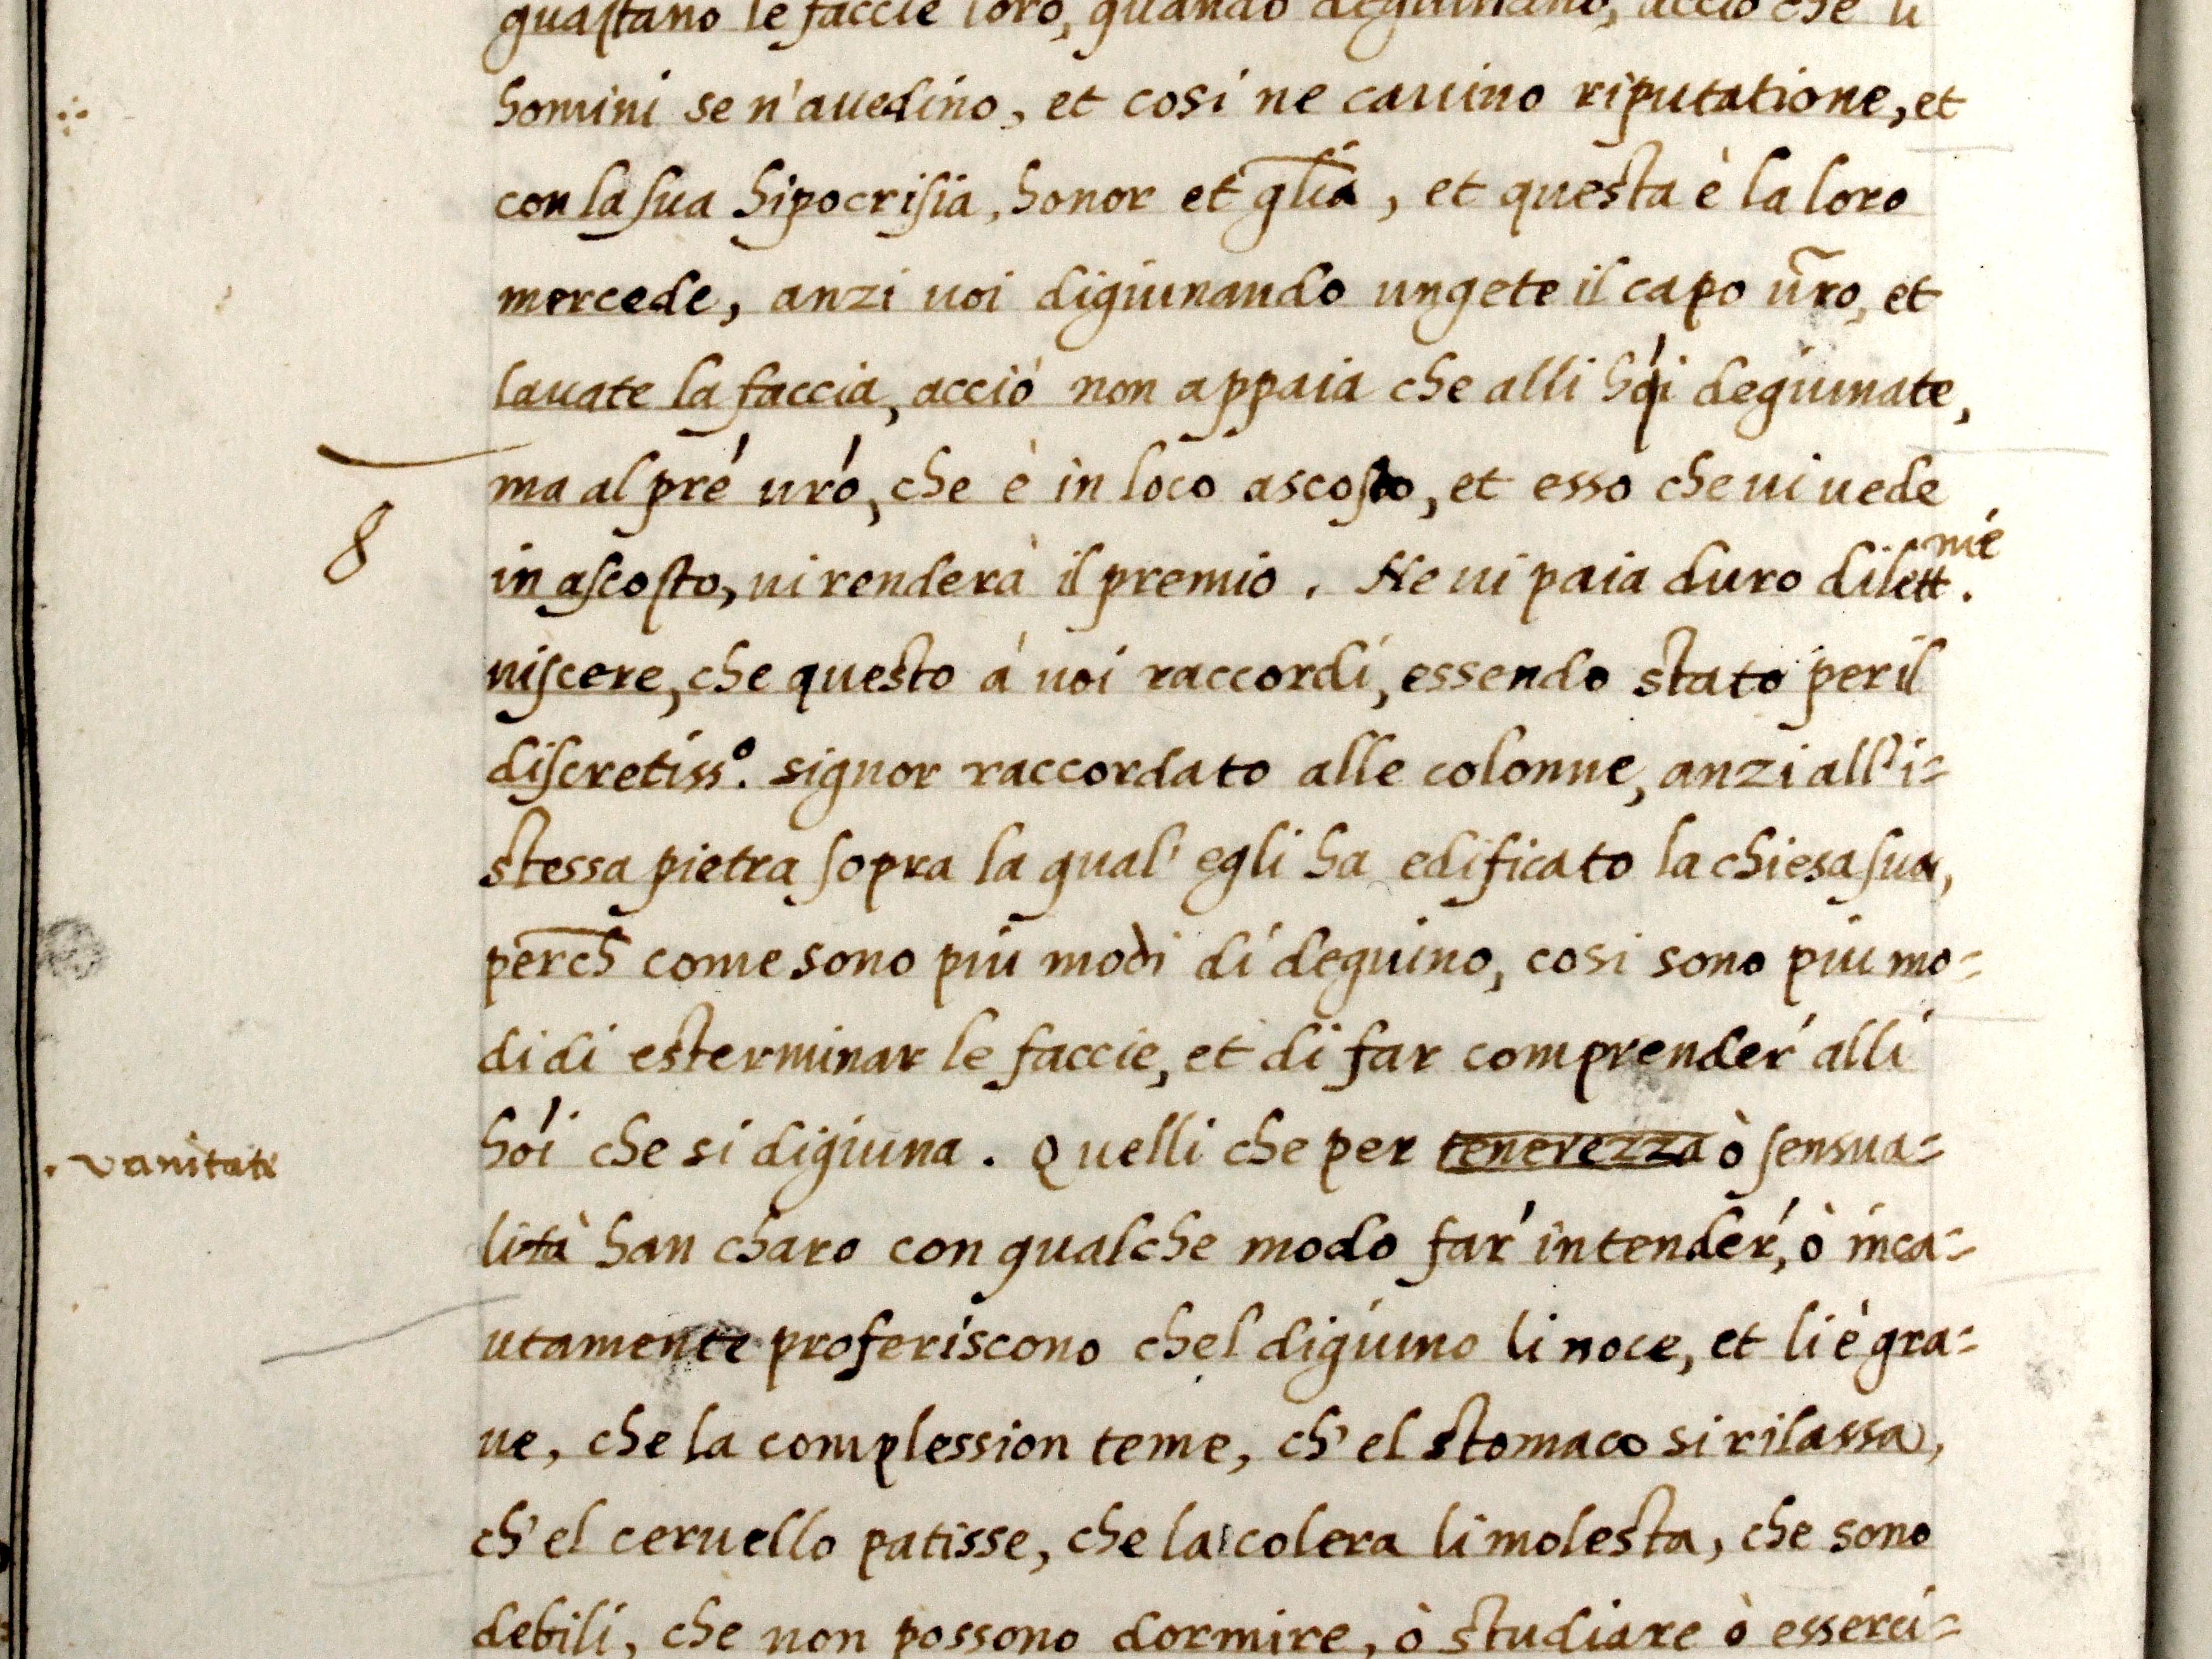 guastano le faccie loro, quando degiunano, acciò che li
homini se n'auedino, et cosi ne cauino riputatione, et
con la sua hipocrisia, honor et gl̃ia, et questa è la loro
mercede, anzi uoi digiunando ungete il capo ur̃o, et
lauate la faccia, acciò non appaia che alli hoi degiunate,
ma al pr̃e ur̃o, che è in loco ascosto, et esso che ui uede
8
in ascosto, ui renderà il premio. Ne ui paia duro dilett.me
niscere, che questo à uoi raccordi, essendo stato per il
discretiss.o signor raccordato alle colonne, anzi all'i=
stessa pietra sopra la qual' egli ha edificato la chiesa sua,
perch̃ come sono più modi di degiuino, cosi sono piu mo=
di di esterminar le faccie, et di far comprender' alli
hoi che si digiuna. Quelli che per tenerezza ò sensua=
vanitate
lità han charo con qualche modo far' intender', ò inca=
utamente proferiscono chel digiuno li noce, et li è gra=
ue, che la complession teme, ch'el stomaco si rilassa,
ch'el ceruello patisse, che la colera li molesta, che sono
debili, che non possono dormire, ò studiare ò esserci=